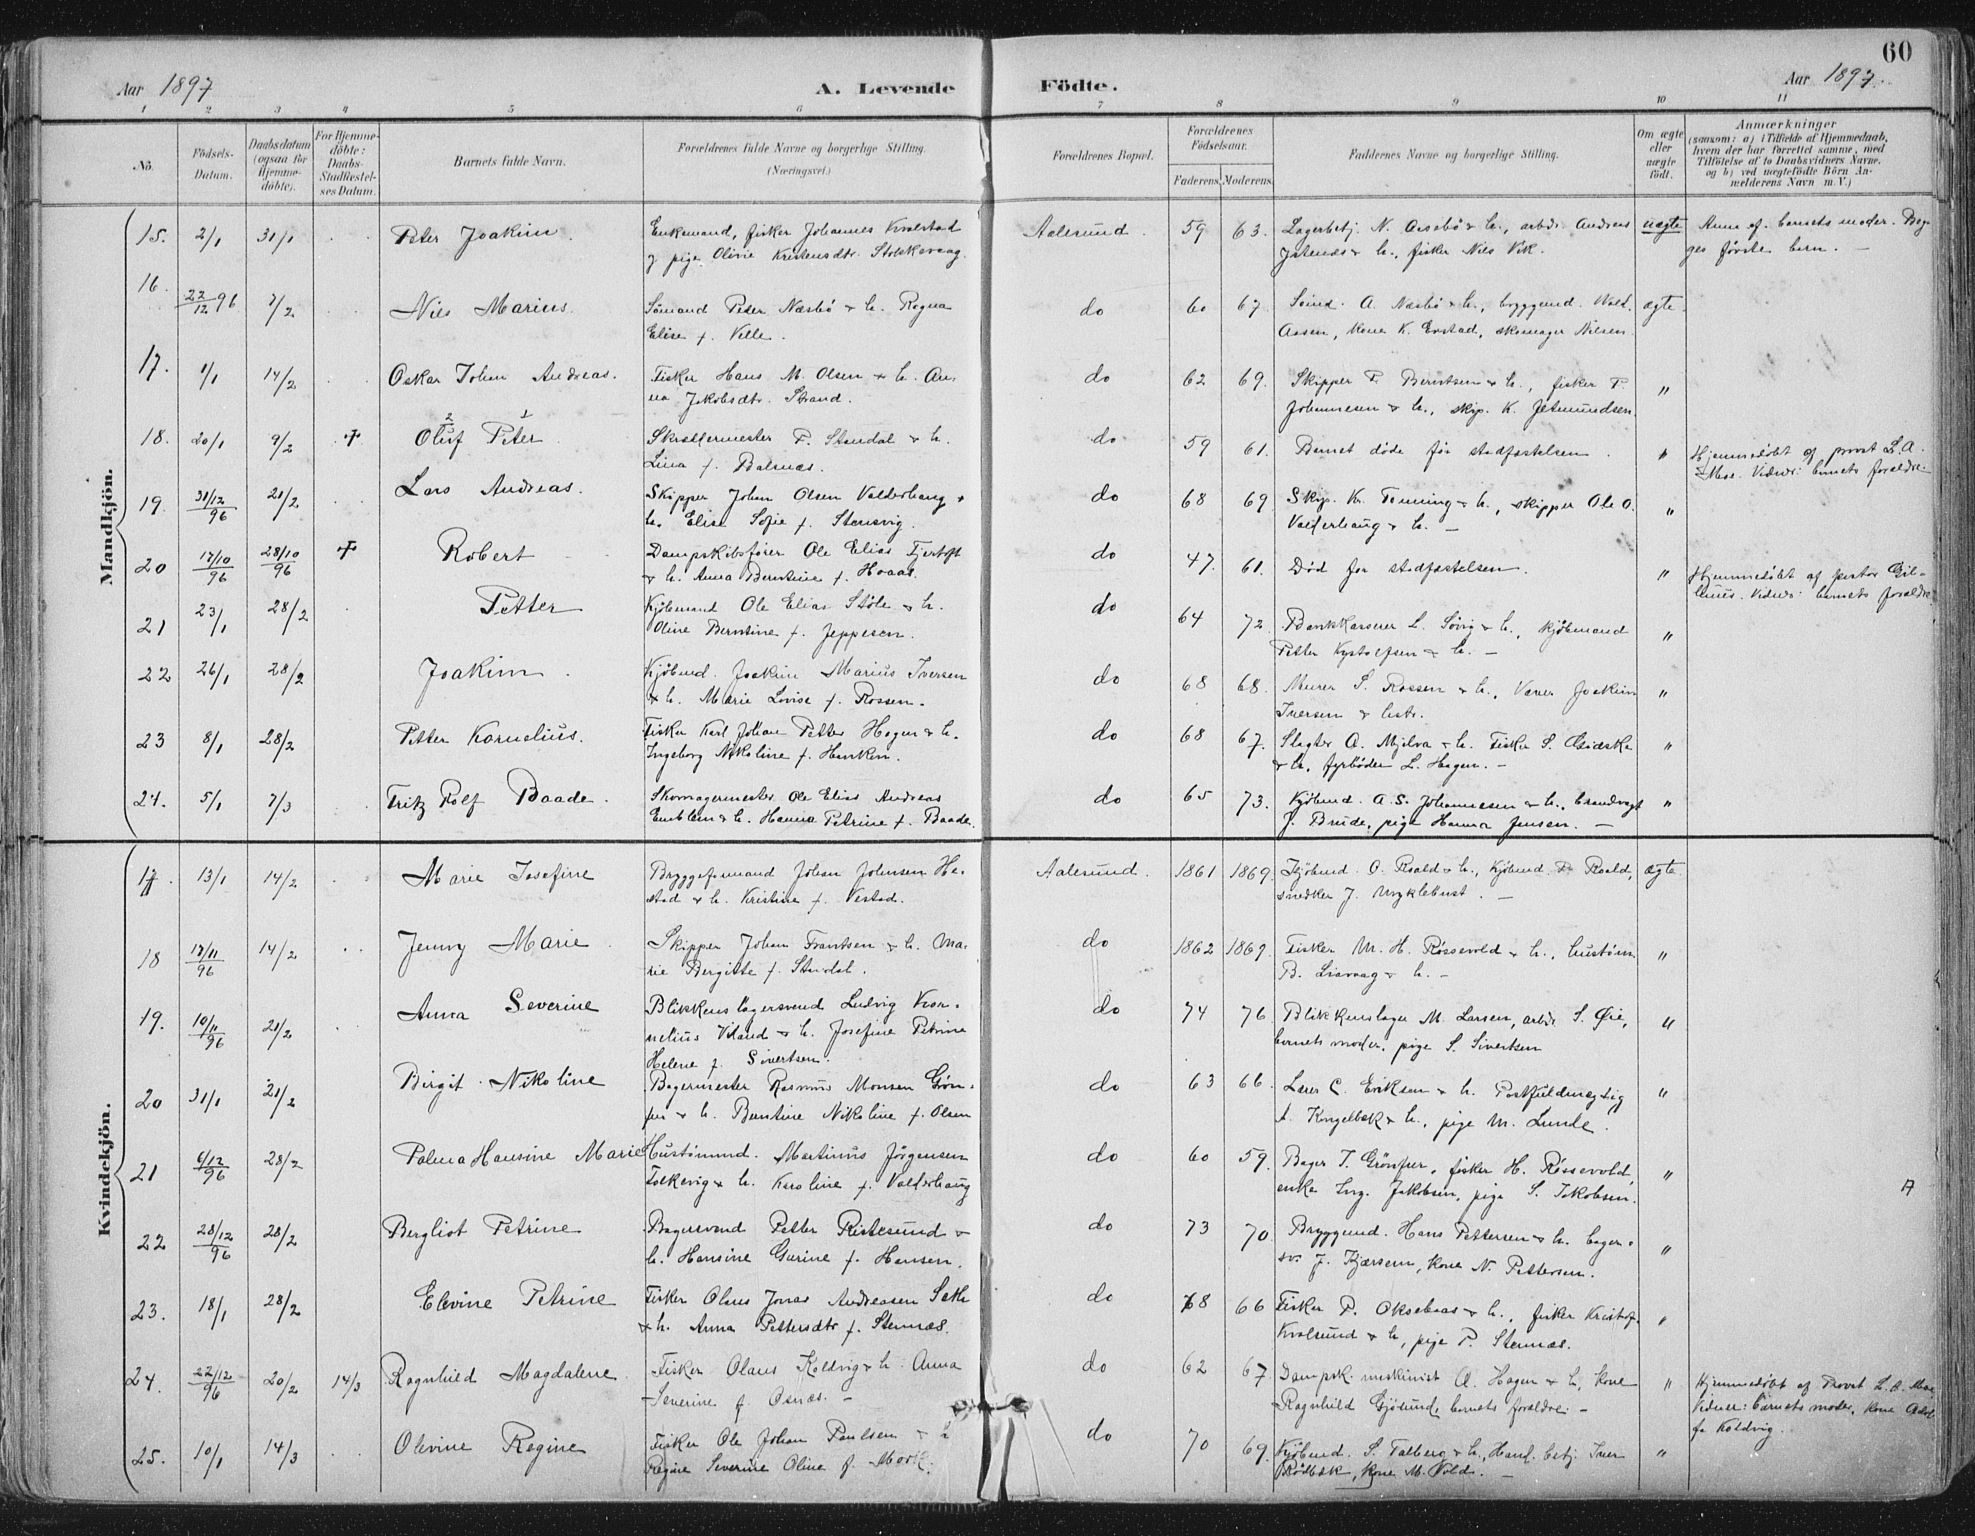 60
Aar 1897
A. Levende
Födte.
Aar 1897.
1 2 3 4 5 6 7 8 9 10 11
No.
Födsels-Datum.
Daabsdatum (ogsaa for Hjemme-döbte).
For Hjemme-döbte: Daabs-Stadfæstel-ses Datum.
Barnets fulde Navn.
Forældrenes fulde Navne og borgerlige Stilling.
(Næringsvei.)
Forældrenes Bopæl.
Forældrenes Födselsaar.
Faderens. Moderens.
Faddernes Navne og borgerlige Stilling.
Om ægte eller uægte födt.
Anmærkninger
(saasom: a) i Tilfælde af Hjemmedaab,
hvem der har forrettet samme, med
Tilföielse af to Daabsvidners Navne,
og b) ved uægtefödte Börn An-
melderens Navn m. V.)
Mandkjön.
15. 2/1 31/1 Peter Joakim. Enkemand, fisker Johannes Kvalstad Aalesund. 59 63. Lagerbetj. N. Aasebö & h., arbdr. Andreas uægte Anm. af barnets moder. Beg-
& pige Olivie Kristensdtr. Stokkevaag. & h., fisker Nils Vik. ges første barn. —
16. 22/12 96 7/2 Nils Marius. Sömand Peder Næsbö & h. Ragna do 60 67. A. Næsbö & h., bryggemd. Wald. ægte.
Elise f. Velle. Aasen, kone K. Enstad, skomager Nilsen.
17. 1/1 14/2 Oskar Johan Andreas. Fisker Hans M. Olsen & h. An- do 62 69. Skipper P. Berntsen & h., fisker P. "
na Jakobsdtr. Strand. Johannesen & h., skip. K. Jetmundsen.
18. 20/1 9/2 † Oluf Peter P. Standal & h. do 59 61. Barnet døde før stadfæstelsen. " Hjemmedöbt af provst L. A.
Lina f. Balsnæs. Moe. Vidner: barnets forældre.
19. 31/12 96 21/2 Lars Andreas. Skipper Johan Olsen Valderhaug & do 68 69 Skip. Kr. Tonning & h., skipper Ole O. "
h. Elise Sofie f. Stensvig. Valderhaug & h. —
20 17/10 96 28/10 96 † Robert Dampskibsfører Ole Elias Fjertoft do 47. 61. Død før stadfæstelsen. " Hjemmedöbt af pastor
& h. Anna Berntine f. Hoaas. Vidner: barnets forældre.
21 23/1 28/2 Petter Kjöbmand Ole Elias Stöle & h. do 64 72. Bankkasserer L. Sövig & h., kjöbmand "
Oline Berntine f. Jeppesen. Petter & h. —
22 26/1 28/2 Joakim. Kjöbmd. Joakim Marius Iversen do 68 68. Murer S. Rossen & h., Joakim "
& h. Marie Lovise f. Rossen. Iversen & hstr.
23 8/1 28/2 Petter Kornelius. Fisker Karl Johan Petter Hagen & h. do 68 67. Slagter A. Mjelva & h. Fisker S. Giskes "
Ingeborg Nikoline f. Hanken. & h., fyrböder L. Hagen. —
24. 5/1 7/3 Fritz Rolf Baade. Skomagermester Ole Elias Andreas do 65 73. Kjöbmd. A. S. Johannesen & h., brandvagt "
Emblem & h. Hanna Petrine f. Baade. J. Brude, pige Hanna Jensen. —
Kvindekjön.
17. 13/1 14/2 Marie Josefine Bryggeformand Johan Johnsen He- Aalesund. 1861 1869. Kjöbmd. O. Roald & h., Kjöbmd. P. Roald, ægte
stad & h. Kristine f. Vestad. snedker J. Myklebust. —
18 17/11 96 14/2 Jenny Marie Skipper Johan Frantsen & h. Ma- do 1862 1869. Fisker M. H. Røssevold & h., hustøm. "
rie Bergitte f. Standal. B. Liavaag & h. —
19. 10/11 96 21/2 Anna Severine Blikkenslagersvend Ludvig Kor- do 74 76. Blikkenslager M. Larsen, arbdr. S. Øie, "
nelius Viland & h. Josefine Petrine barnets moder, pige S. Sivertsen
Helene f. Sivertsen.
20 31/1 21/2 Birgit Nikoline Bagermester Rasmus Monsen Grön- do 63 66. Lærer C. Eriksen & h. Postfuldmægtig "
& h. Berntine Nikoline f. Olsen & h., pige M. Lunde.
21 6/12 96 28/2 Palma Hansine Marie Hustømmd. Martinus Jörgensen do 60 59. Bager fisker H. Røssevold, "
Folkevig & h. Karoline f. Valderhaug enke Ing. Jakobsen, pige S. Jakobsen.
22 28/12 96 28/2 Bergliot Petrine Bagersvend Petter Ristesund & do 73 70. Bryggemd. Hans Pettersen & h. bager- "
h. Hansine Gurine f. Hansen. sv. J. Kjærsem, kone N. Pettersen.
23. 18/1 28/2 Elevine Petrine Fisker Olaus Jonas Andreasen Sæth do 68 66 Fisker P. Oksebaas & h., fisker Kristof. "
& h. Anna Pettersdtr. f. Stennæs. Kvalsund & h., pige P. Stennæs.
24. 22/12 96 20/2 14/3 Ragnhild Magdalene Fisker Olaus Koldvig & h. Anna do 62 67. Dampsk. maskinist A. Hagen & h., kone " Hjemmedöbt af Provst L. A. Moe
Severine f. Osnæs. — Ragnhild Gjøsund, barnets forældre. — Vidner: barnets moder, kone
Koldvig.
25. 10/1 14/3 Olevine Regine Fisker Ole Johan Paulsen & h. do 70 69. Kjöbmd. S. Talberg & h., Handl. betj. Iver "
Regine Severine Oline f. Mork. Rødbæk, kone M. Vold. —